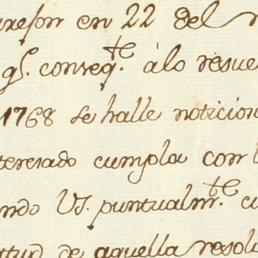 en 22 del
qᵉ. conseqᵗᵉ. á lo resue
1768 se halle noticios
teresado cumpla con l
ndo VS. puntualmᵗᵉ. cu
de aquella resolu